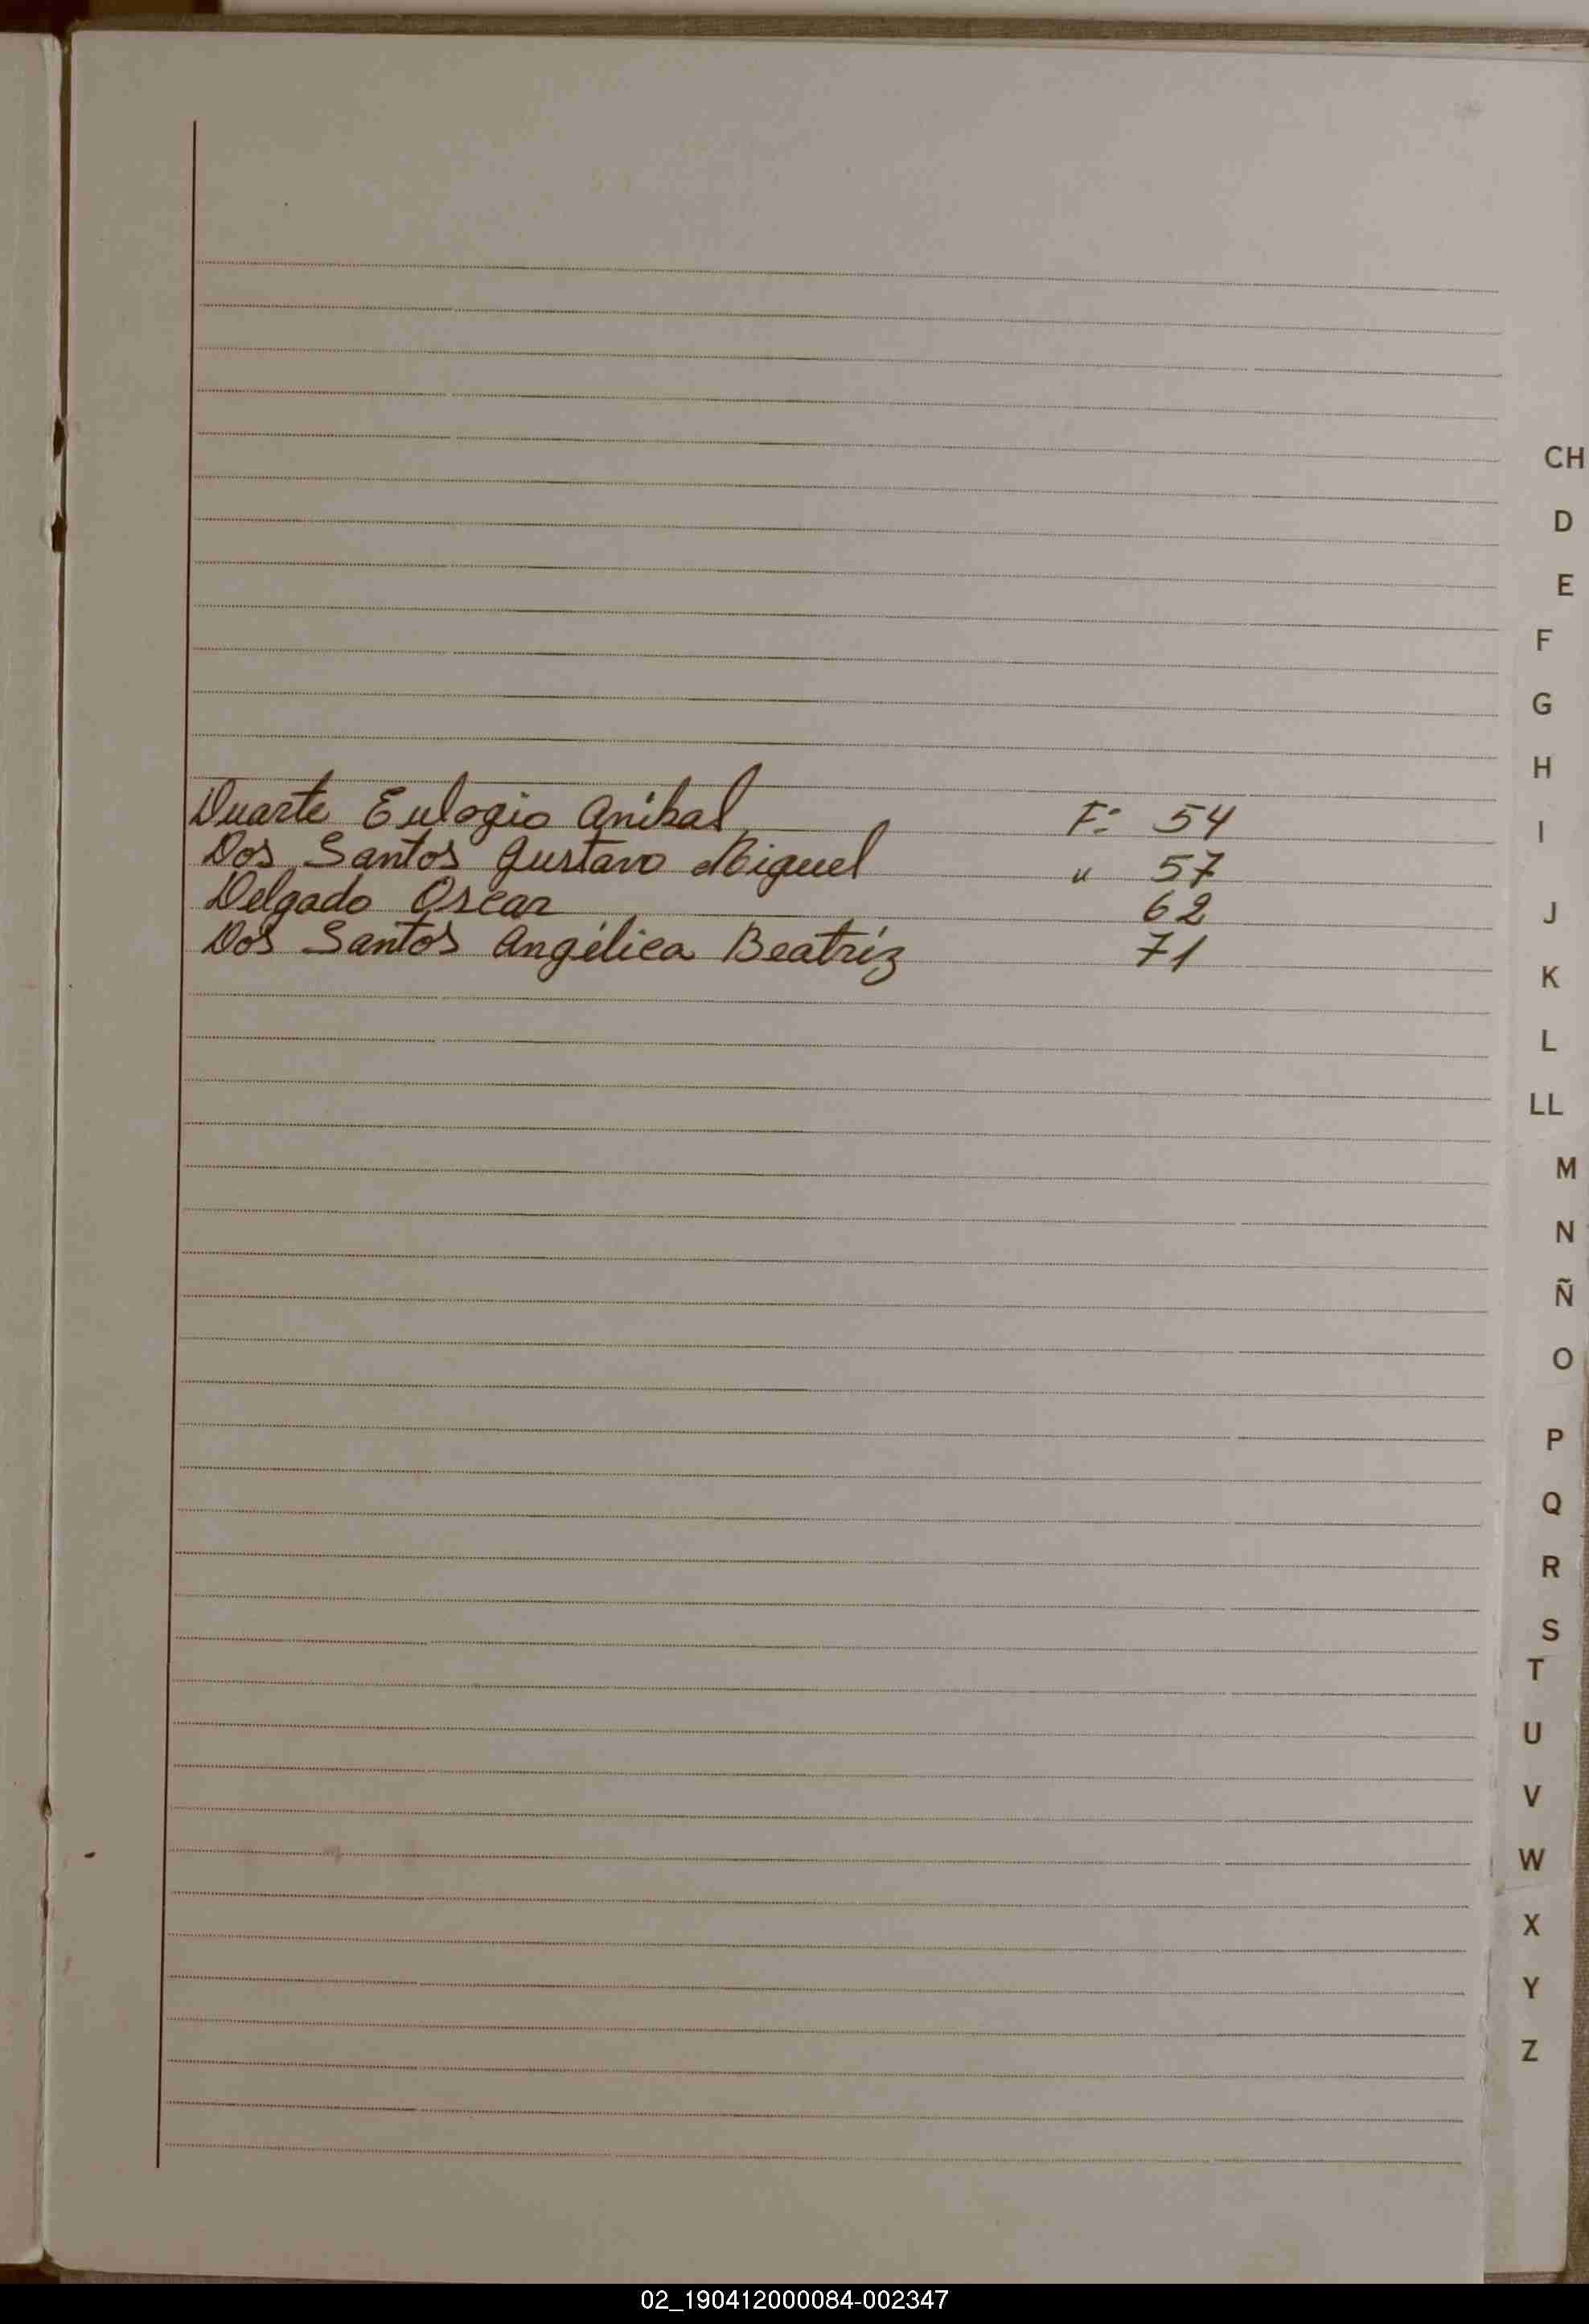 Duarte Eulogio Anibal F: 54
Dos Santos Gustavo Miguel " 57
Delgado Oscar 62
Dos Santos Angélica Beatríz 71
CH
D
E
F
G
H
I
J
K
L
LL
M
N
Ñ
O
P
Q
R
S
T
U
V
W
X
Y
Z
02_190412000084-002347